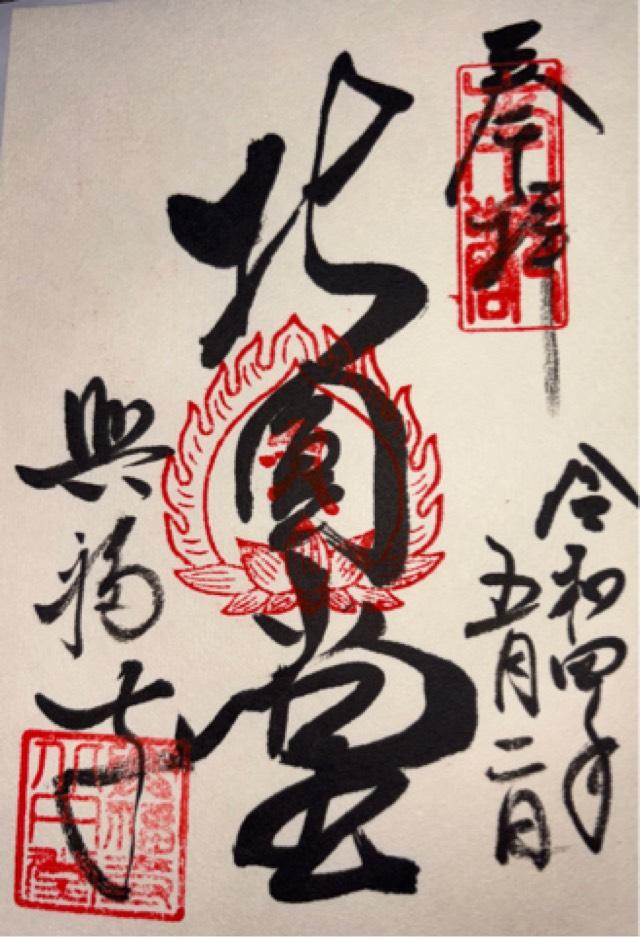 奉拝
令和四年
五月二日
北圓堂
興福寺